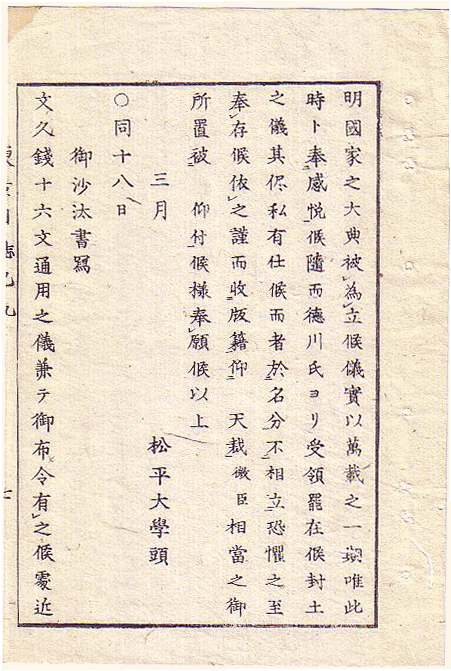 明國家之大典被爲立候儀實以萬載之一期唯此
時ト奉感悦候隨而德川氏ヨリ受領罷在候封土
之儀其侭私有仕候而者於名分不相立恐懼之至
奉存候依之謹而收版籍仰　天裁微臣相當之御
所置被　仰付候樣奉願候以上
三月　松平大學頭
○同十八日
御沙汰書寫
文久錢十六文通用之儀兼テ御布令有之候處近